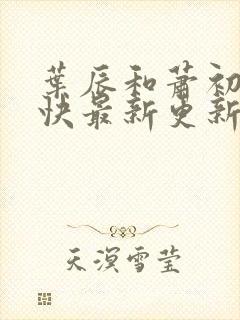 葉辰和蕭初
快最新更新
天溟雪莹